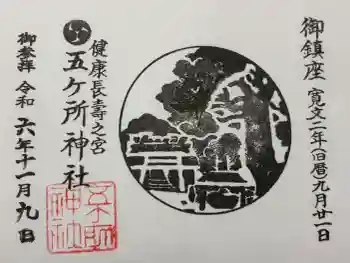 御鎮座 寛文二年(旧暦)九月廿一日
健康長壽之宮
五ケ所神社
御参拝 令和 六年十一月九日
五所神社